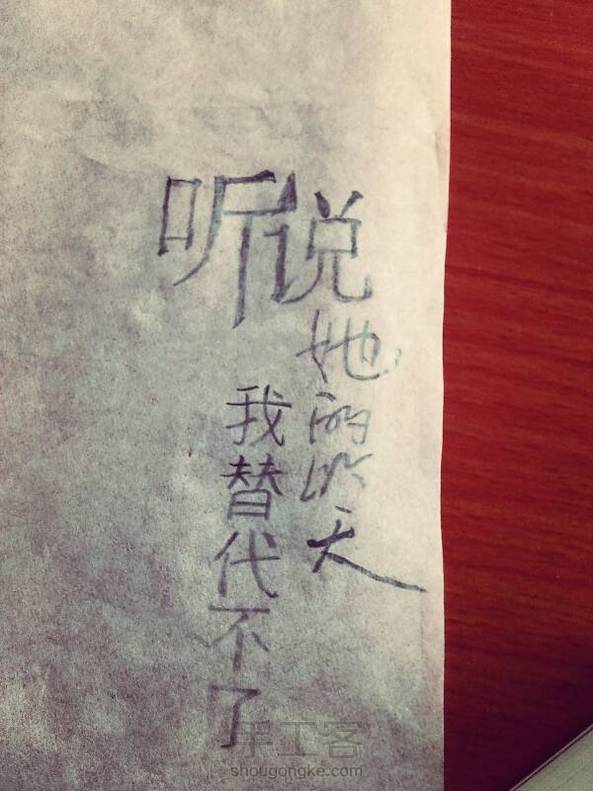 听说
她的昨天
我替代不了
手工客
shougongke.com